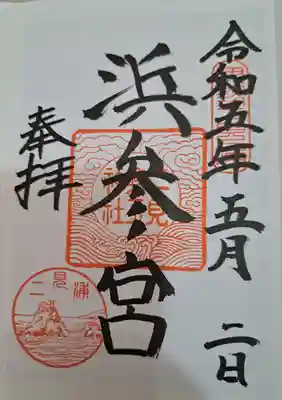 令和五年五月二日
浜参宮
奉拝
二見
神社
二見浦